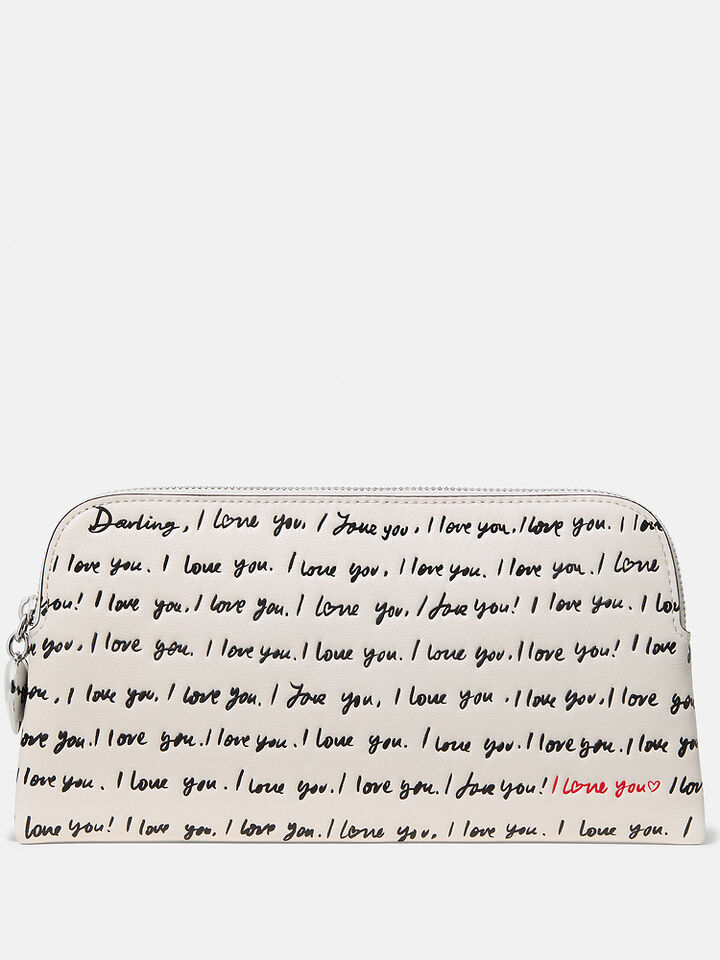 Darling, I love you, I love you, I love you. I love you. I lov
I love you. I love you. I love you, I love you. I love you. I love
you! I love you, I love you. I love you, I love you! I love you. I lov
you, I love you. I love you. I love you. I love you, I love you! I love y
you, I love you. I love you. I love you, I love you, I love you, I love you
ove you. I love you. I love you. I love you. I love you. I love you.
I love you. I love you. I love you. I love you. I love you! I love you♡ I lov
love you! I love you, I love you. I love you, I love you. I love you. I